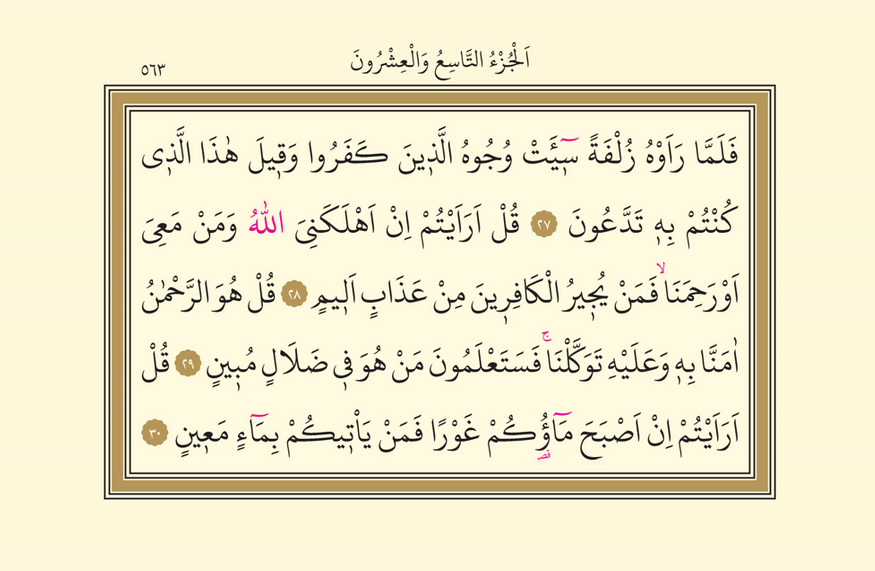 اَلْجُزْءُ التَّاسِعُ وَالْعِشْرُونَ
٥٦٣
فَلَمَّا رَاَوْهُ زُلْفَةً سٖٓيـَٔتْ وُجُوهُ الَّذٖينَ كَفَرُوا وَقٖيلَ هٰذَا الَّذٖى
كُنْتُمْ بِهٖ تَدَّعُونَ ٢٧ قُلْ اَرَاَيْتُمْ اِنْ اَهْلَكَنِىَ اللّٰهُ وَمَنْ مَعِىَ
اَوْرَحِمَنَاۙ فَمَنْ يُجٖيرُ الْكَافِرٖينَ مِنْ عَذَابٍ اَلٖيمٍ ٢٨ قُلْ هُوَ الرَّحْمٰنُ
اٰمَنَّا بِهٖ وَعَلَيْهِ تَوَكَّلْنَاۚ فَسَتَعْلَمُونَ مَنْ هُوَ فٖى ضَلَالٍ مُبٖينٍ ٢٩ قُلْ
اَرَاَيْتُمْ اِنْ اَصْبَحَ مَٓاؤُ۬كُمْ غَوْرًا فَمَنْ يَاْتٖيكُمْ بِمَٓاءٍ مَعٖينٍ ٣٠